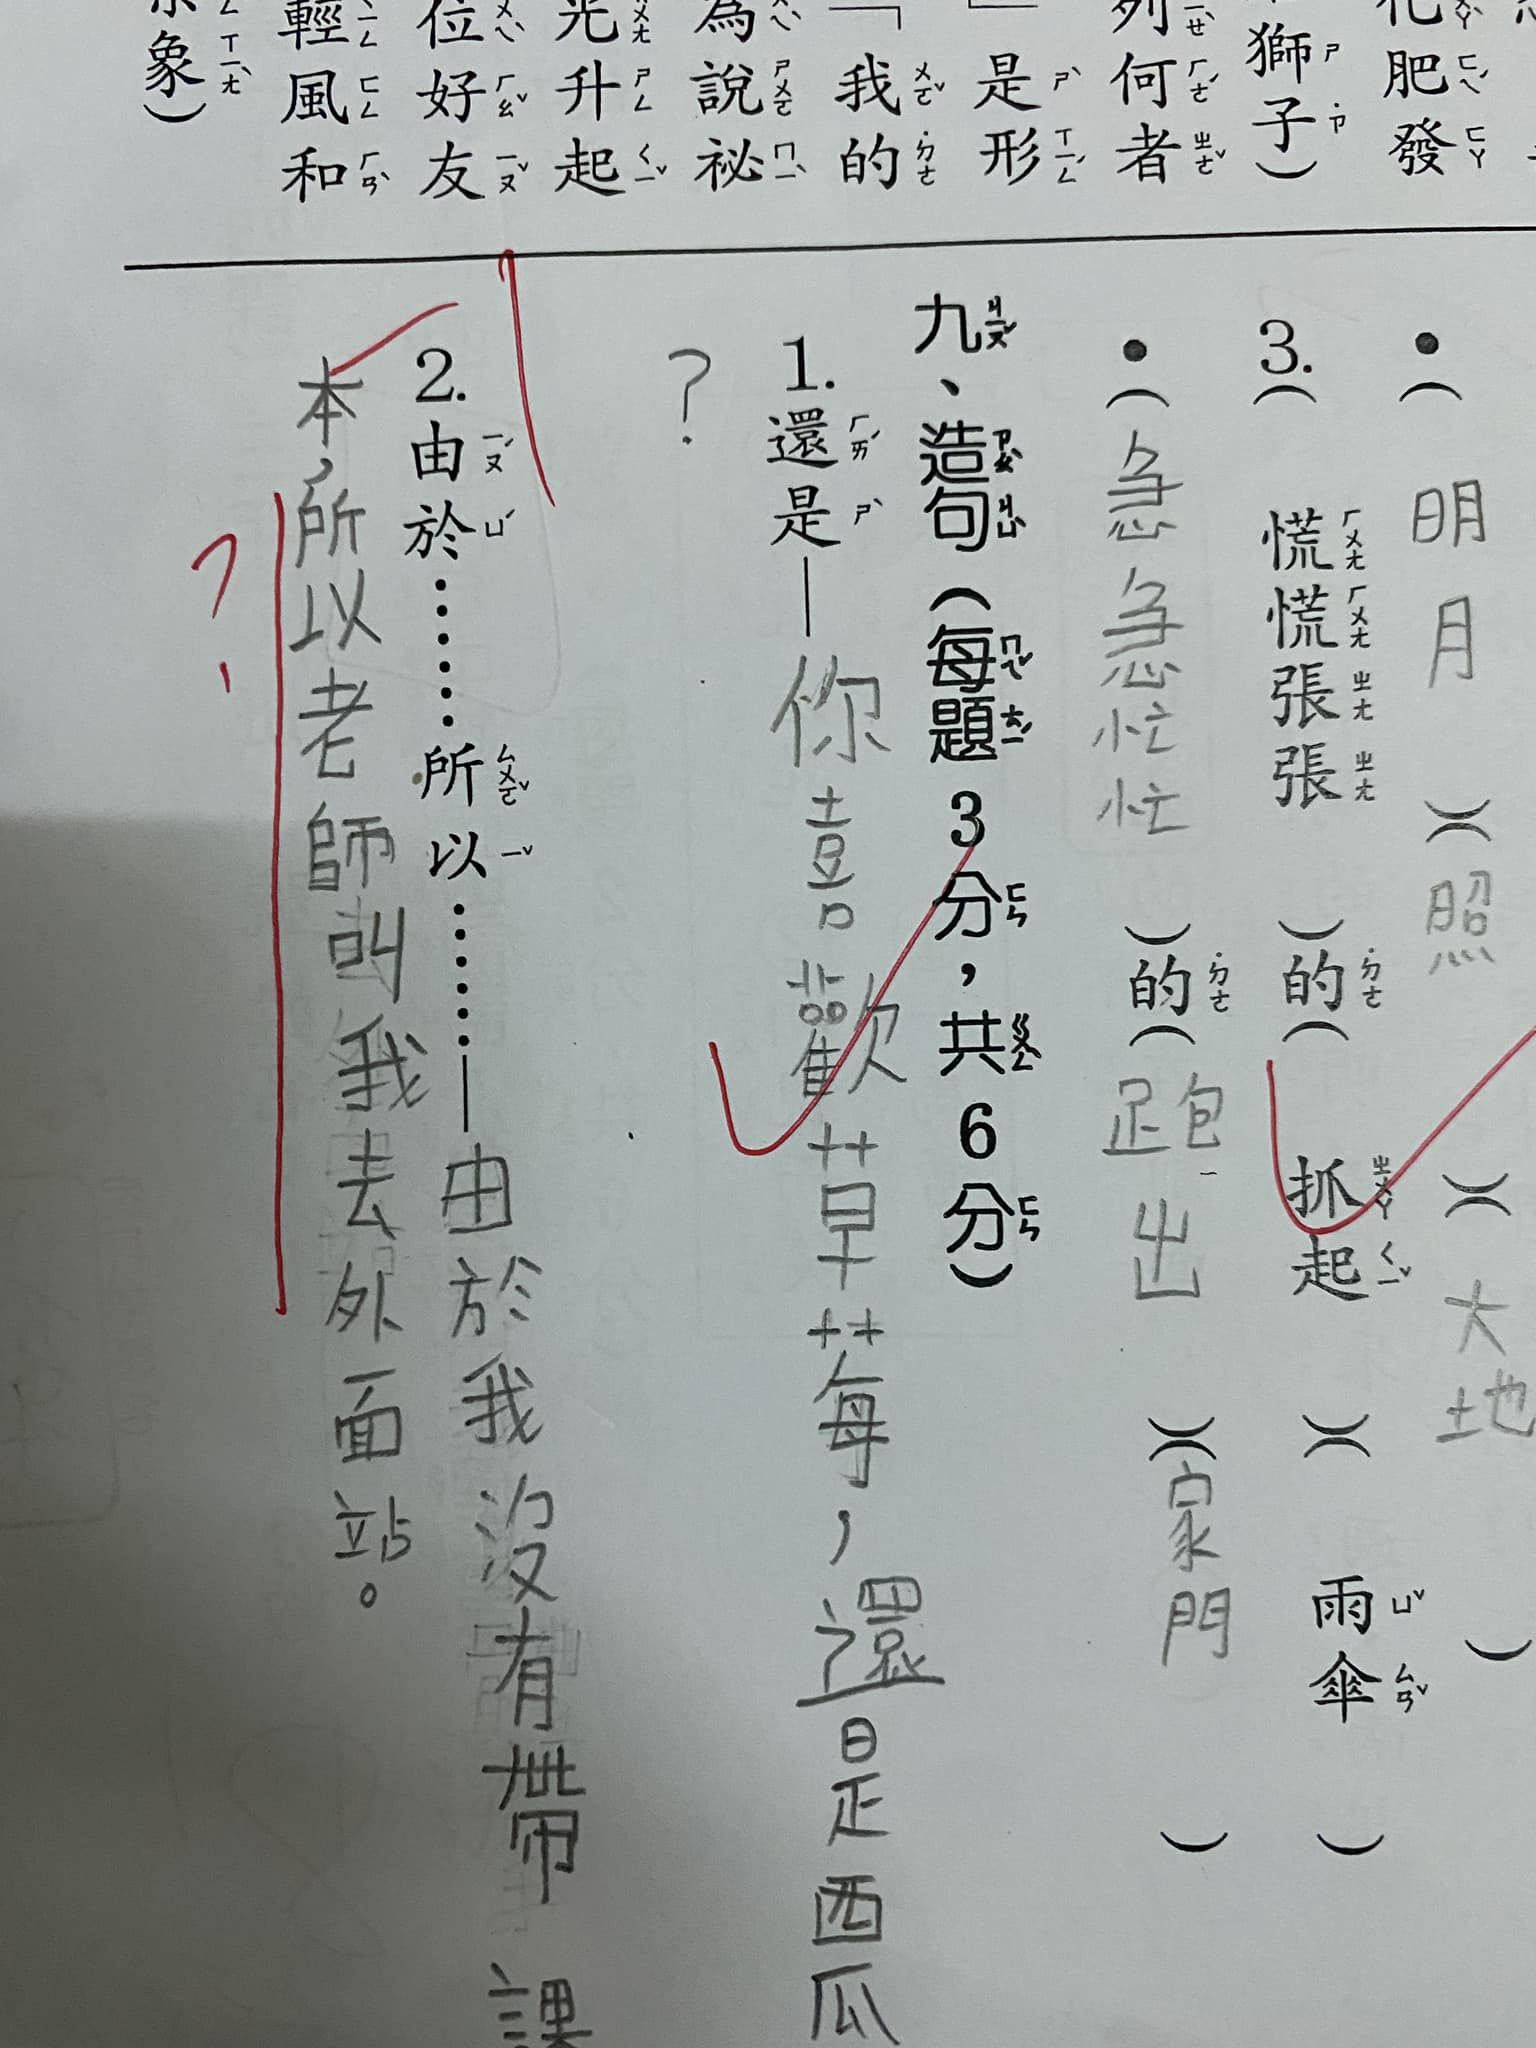 化肥發
獅子）
列何者
」是形
「我的
為說祕
光升起
位好友
輕風和
象）
●（明月）（照）（大地）
3.（慌慌張張）的（抓起）（雨傘）
●（急急忙忙）的（跑出）（家門）
九、造句（每題3分，共6分）
1.還是—你喜歡草莓，還是西瓜
？
2.由於……所以……—由於我沒有帶課
本，所以老師叫我去外面站。
？